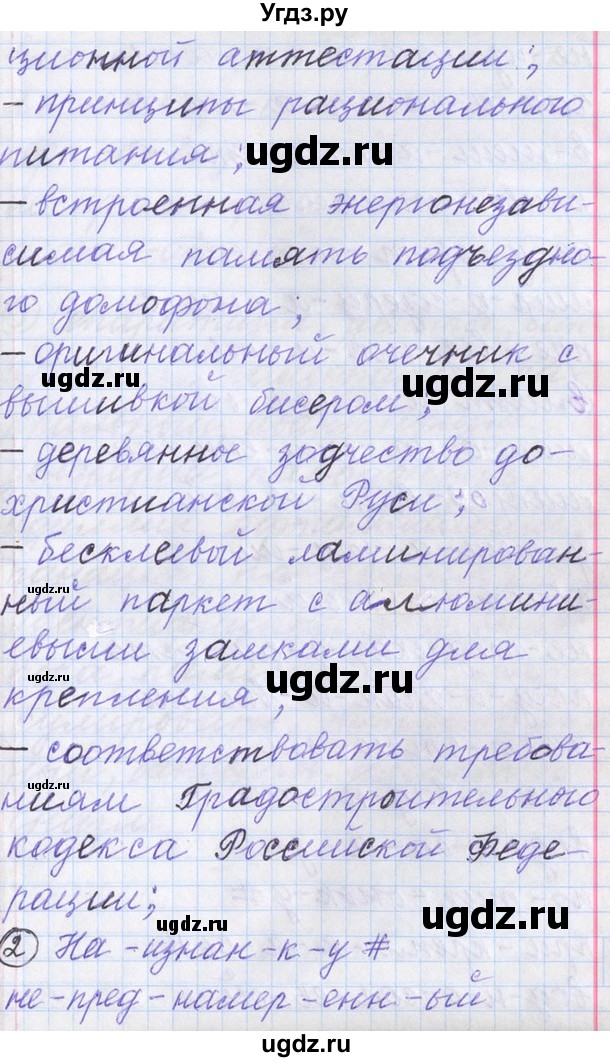 Угдз.ру
ционной аттестации;
– принципы рационального
питания;
ugdz.ru
– встроенная энергонезави-
симая память подъездно-
го домофона;
ugdz.ru
– оригинальный очечник с
ugdz.ru
вышивкой бисером;
ugdz.ru
– деревянное зодчество до-
христианской Руси;
ugdz.ru
– бесклеевый ламинирован-
ugdz.ru
ный паркет с аллюмини-
евыми замками для
ugdz.ru
крепления;
ugdz.ru
– соответствовать требова-
ugdz.ru
ниям Градостроительного
кодекса Российской Феде-
ugdz.ru
рации;
2 На-изнан-к-у #
не-пред-намер-енн-ый
ugdz.ru
Угдз.ру